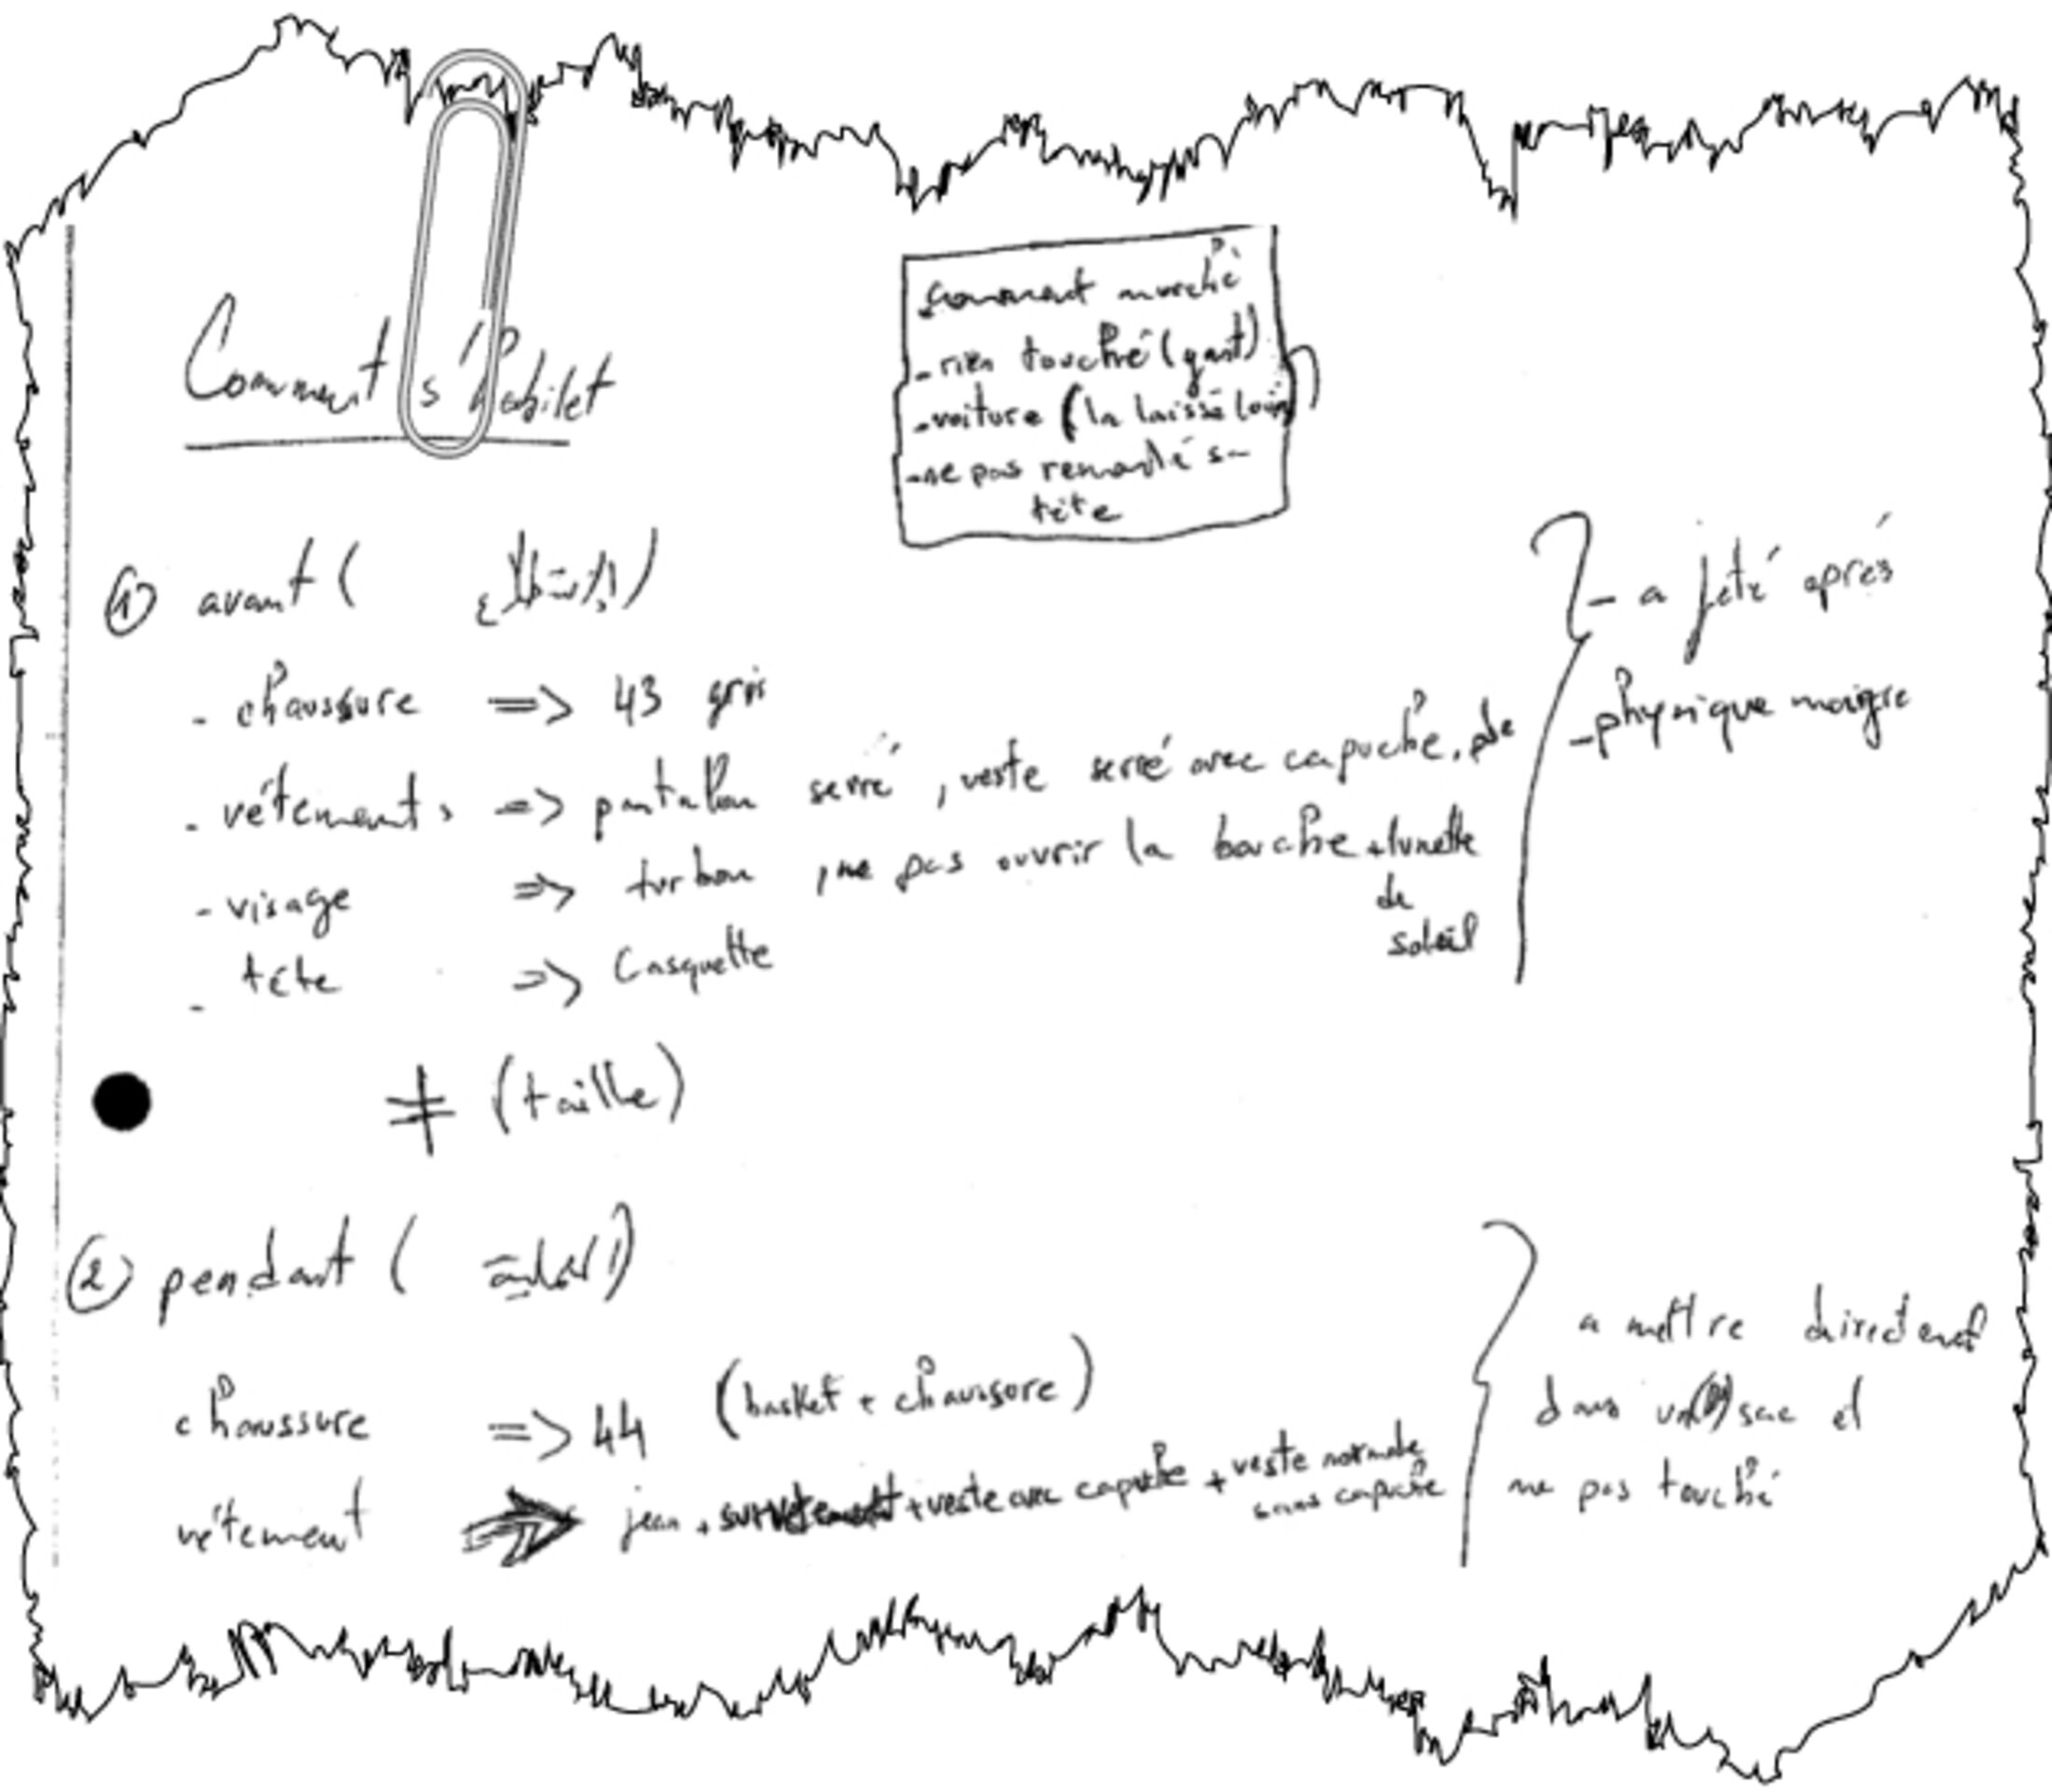 Comment s'habilet
- Comment marché
- rien touché (gant)
- voiture (la laissé loin)
- ne pas remonté sa
tête
① avant (الاستطلاع)
- chaussure => 43 gris
- vétements => pantalon serré, veste serré avec capuche.
- visage => turban, ne pas ouvrir la bouche + lunette
de
soleil
- tête => Casquette
- a jeté aprés
- physique maigre
≠ (taille)
② pendant (
chaussure => 44 (basket + chaussure)
vétement => jean + survetement + veste avec capuche + veste normale
sans capuche
a mettre directement
dans un sac et
ne pas touché